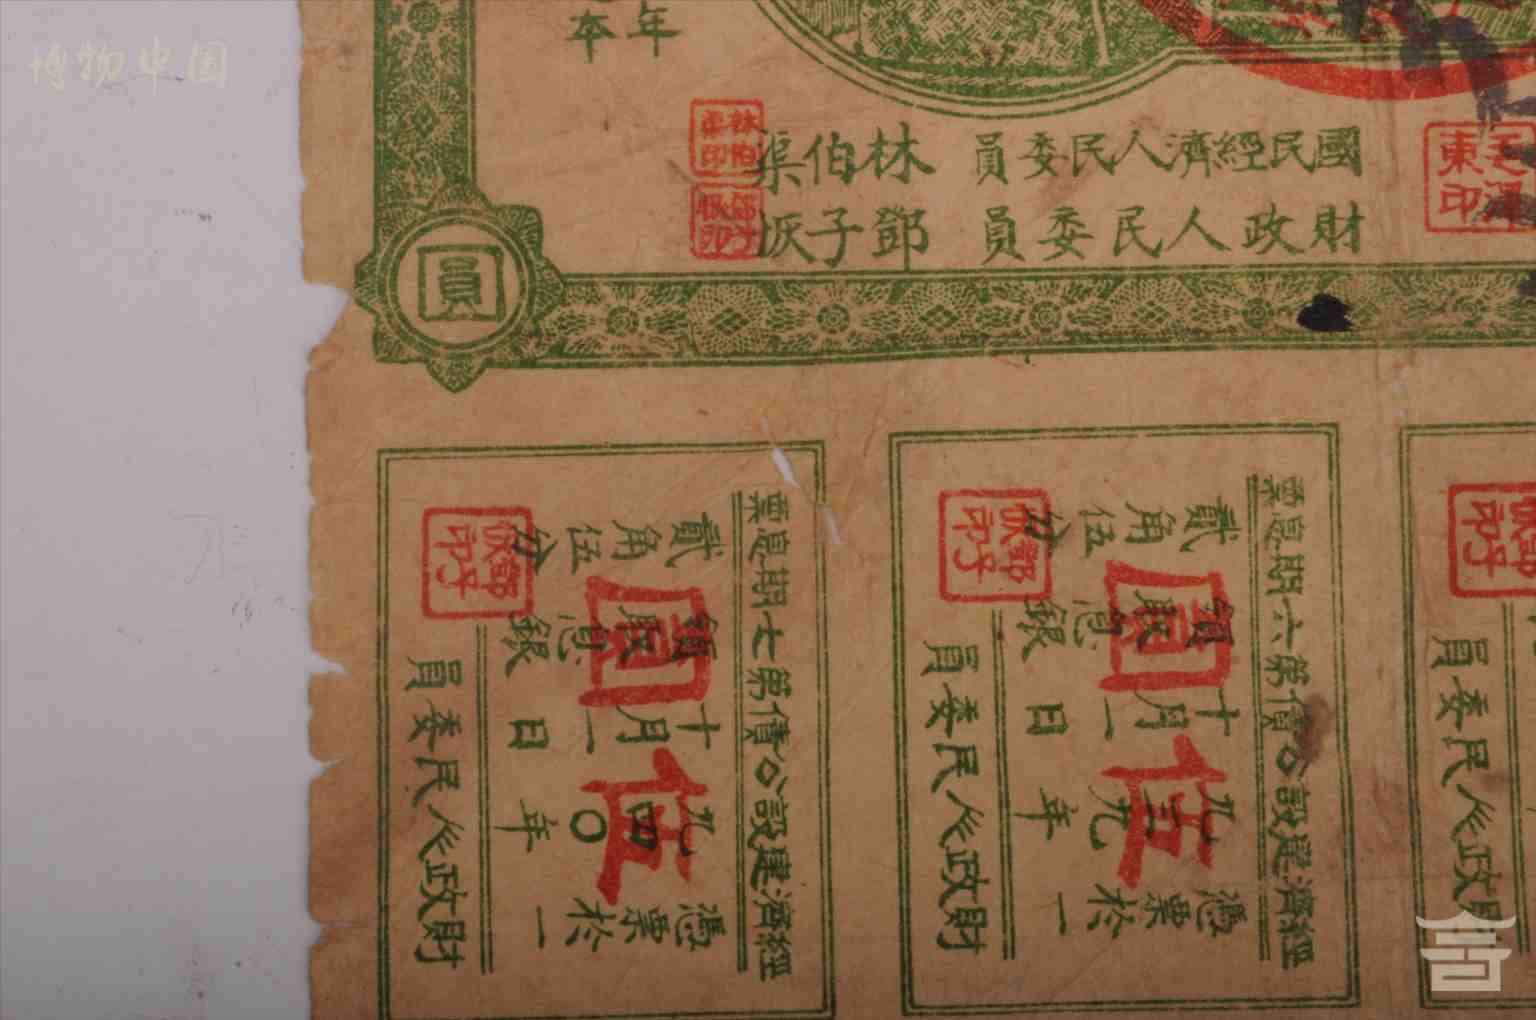 博物中國
年
本
國民經濟人民委員 林伯渠
林伯渠印
財政人民委員 鄧子恢
鄧子恢印
毛澤東印
圓
經濟建設公債第六期息票
憑票於一
九三九年
十月一日
領取息銀
貳角伍分
伍圓
財政人民委員
鄧子恢印
經濟建設公債第七期息票
憑票於一
九四〇年
十月一日
領取息銀
貳角伍分
伍圓
財政人民委員
鄧子恢印
財政人民委員
鄧子恢印